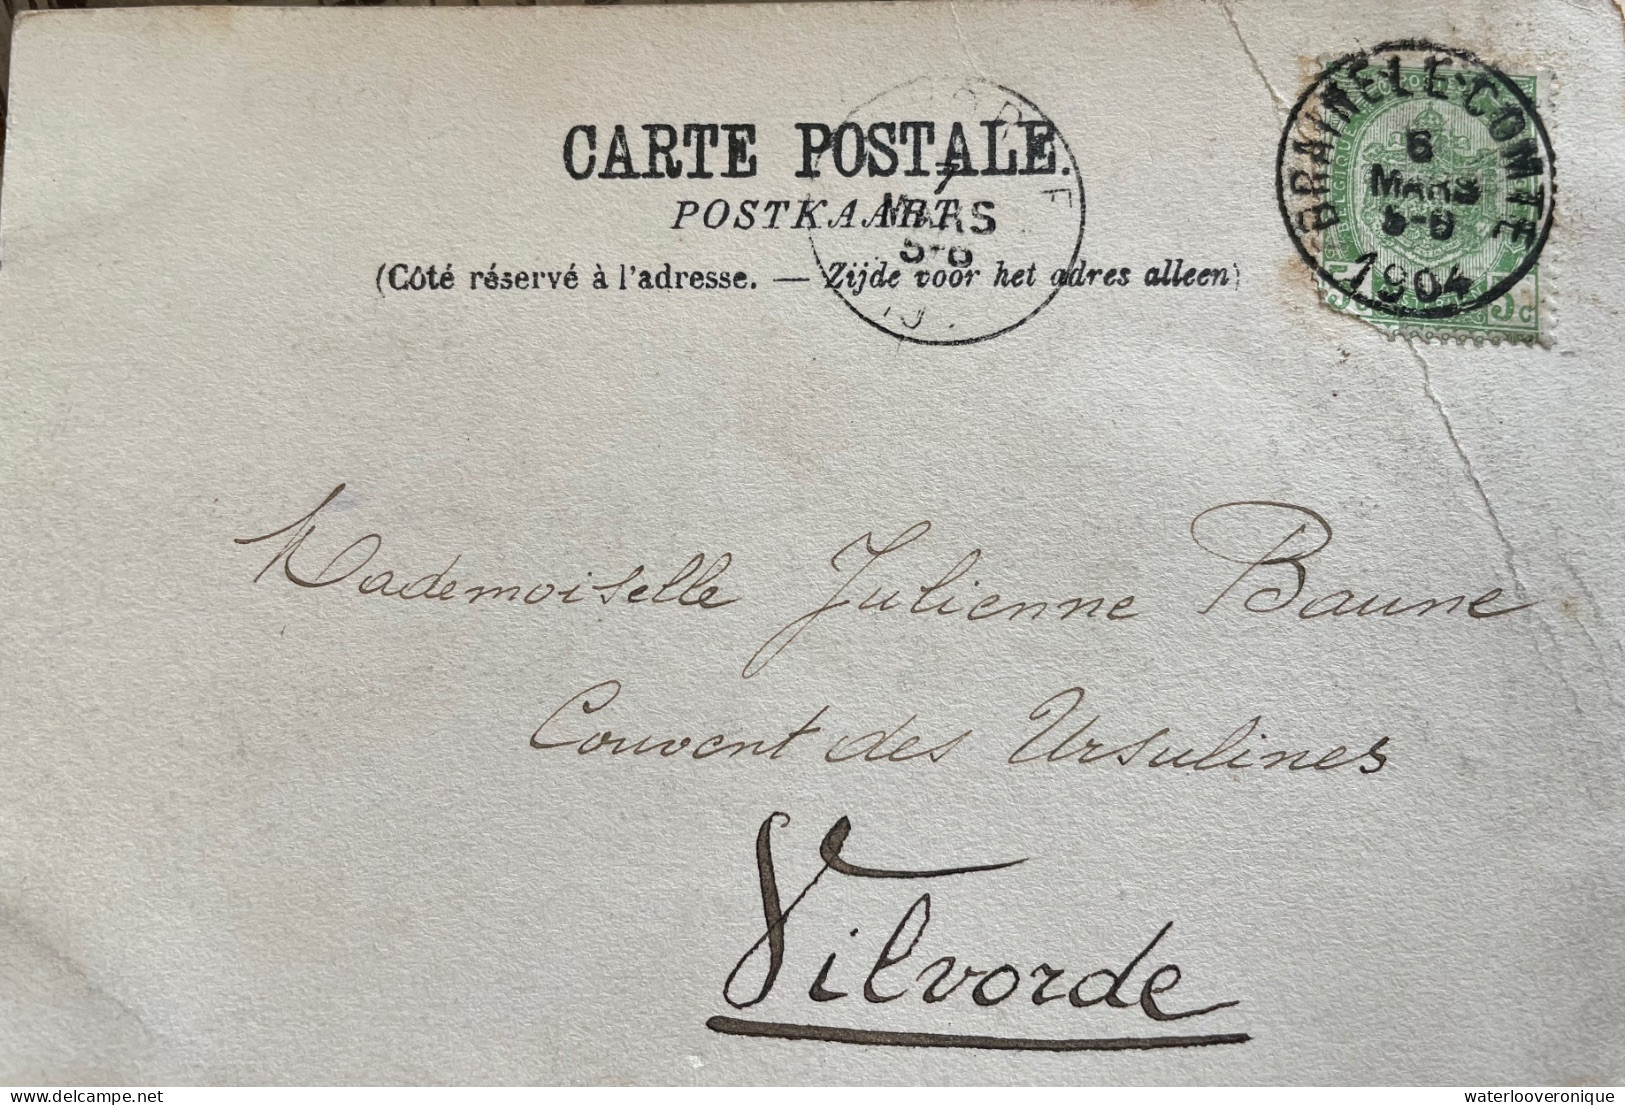 CARTE POSTALE.
POSTKAART
(Côté réservé à l'adresse. — Zijde voor het adres alleen)
7
MARS
BRAINE-LE-COMTE
6
MARS
1904
BELGIQUE
5c
Mademoiselle Julienne Baune
Couvent des Ursulines
Vilvorde
delcampe.net
waterlooveronique